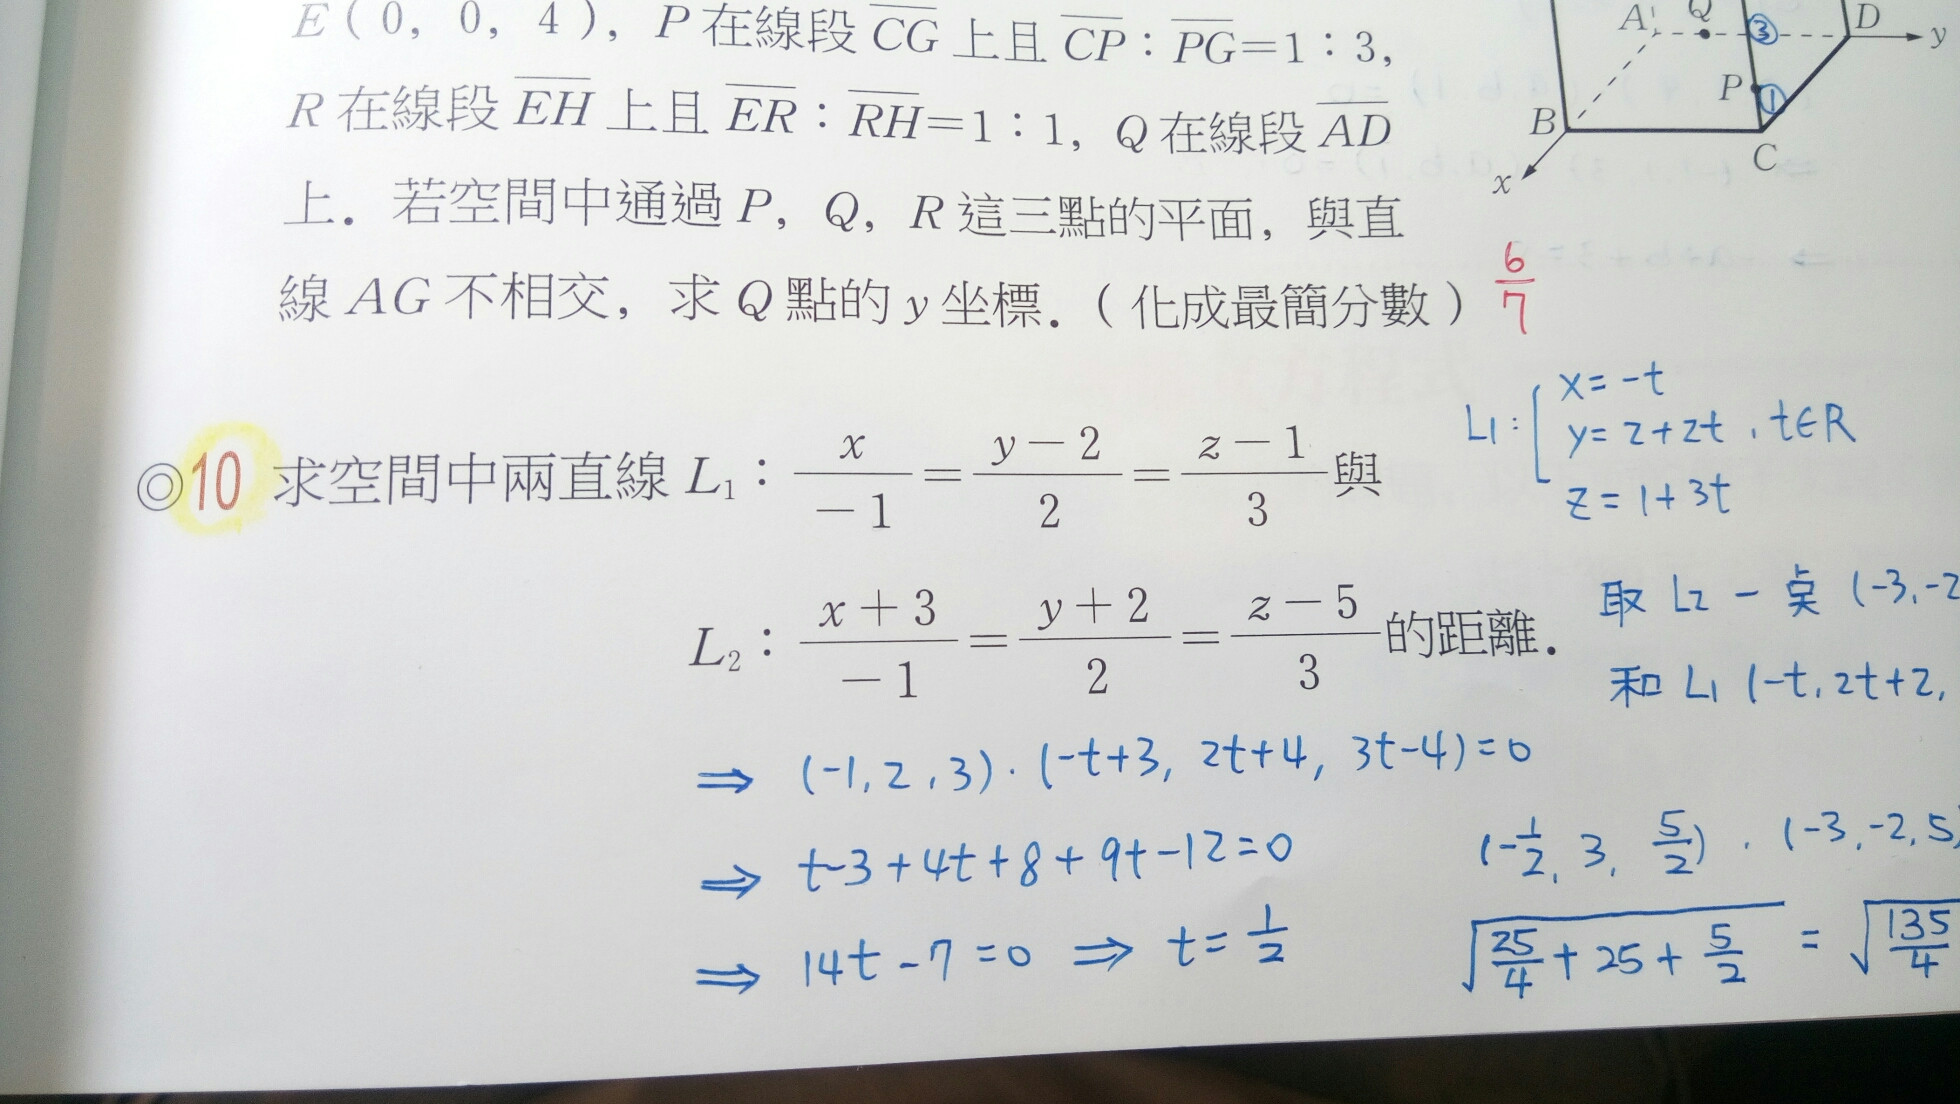 E(0, 0, 4), P在線段 CG 上且 CP:PG=1:3,
R在線段 EH 上且 ER:RH=1:1, Q在線段 AD
上. 若空間中通過 P, Q, R 這三點的平面, 與直
線 AG 不相交, 求 Q 點的 y 坐標. (化成最簡分數) 6/7
A Q ③ D y
P ①
B
C
x
◎10 求空間中兩直線 L₁: x/-1 = (y-2)/2 = (z-1)/3 與
L₂: (x+3)/-1 = (y+2)/2 = (z-5)/3 的距離.
L1: x=-t
y=2+2t, t∈R
z=1+3t
取 L2 一點 (-3,-2
和 L1 (-t, 2t+2,
⇒ (-1, 2, 3)·(-t+3, 2t+4, 3t-4)=0
⇒ t-3+4t+8+9t-12=0
⇒ 14t-7=0 ⇒ t=1/2
(-1/2, 3, 5/2), (-3,-2,5)
√(25/4+25+5/2) = √(135/4)